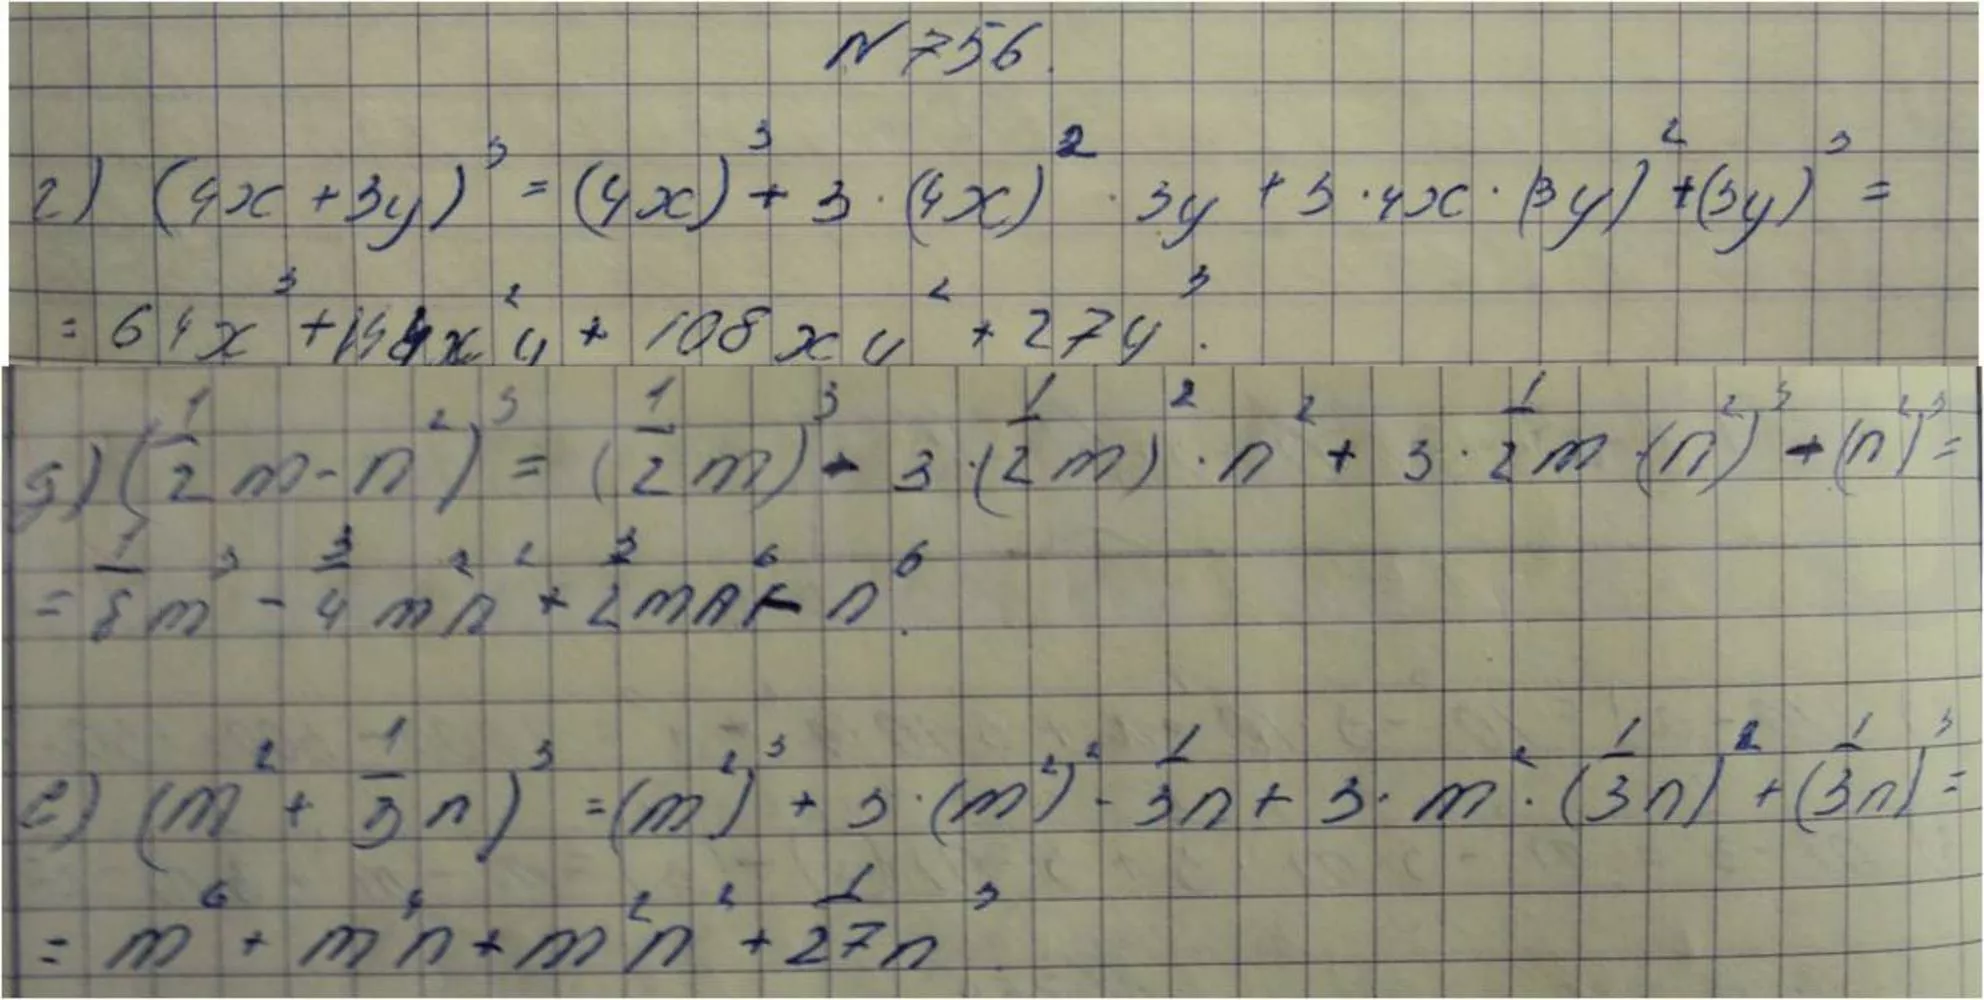 N 756.
г) (4x + 3y)³ = (4x)³ + 3 · (4x)² · 3y + 3 · 4x · (3y)² + (3y)³ =
= 64x³ + 144x²y + 108xy² + 27y³.
д) (1/2 m - n²)³ = (1/2 m)³ - 3 · (1/2 m)² · n² + 3 · 1/2 m · (n²)³ - (n²)³ =
= 1/8 m³ - 3/4 m²n² + 3/2 mn⁶ - n⁶.
е) (m² + 1/3 n)³ = (m²)³ + 3 · (m²)² · 1/3 n + 3 · m² · (1/3 n)² + (1/3 n)³ =
= m⁶ + m⁴n + m²n² + 1/27 n³